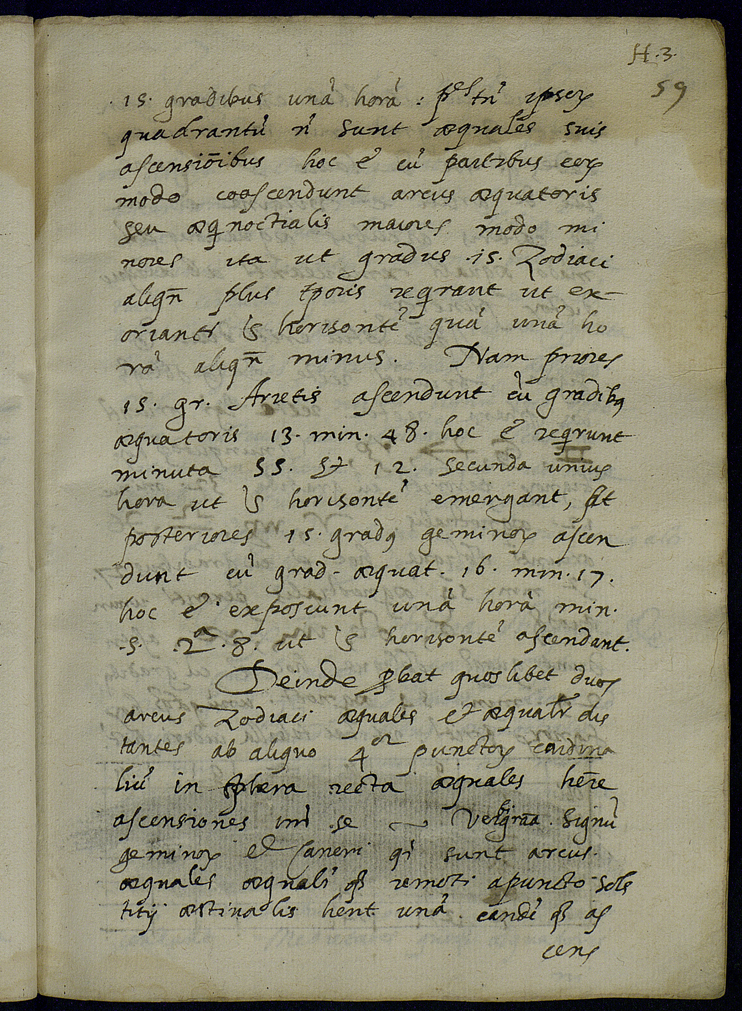 H.3.
59
15. gradibus unā horā : ptēs tñ ipsoꝝ
quadrantū ñ sunt æquales suis
ascensiōibus hoc ē cū partibus eoꝝ
modo coascendunt arcus æquatoris
seu æqnoctialis maiores modo mi
nores ita ut gradus .15. Zodiaci
aliqñ plus tp̄oris reqrant ut ex-
oriantr horisontē quā unā ho
rā aliqñ minus. Nam priores
15. gr. Arietis ascendunt cū gradibꝰ
æquatoris 13. min. 48. hoc ē reqrunt
minuta 55. Et 12. secunda unius
hora ut horisontē emergant, At
posteriores 15. gradꝰ geminoꝝ ascen
dunt cū grad. æquat. 16. min. 17.
hoc ē exposcunt unā horā min.
.5. 2ᵃ. 8. ut horisontē ascendant.
Deinde ꝓbat quoslibet duos
arcus Zodiaci æquales et æqualr dis
tantes ab aliquo 4ᵒʳ punctoꝝ cardina
liū in sphera recta æquales hēre
ascensiones int se ~ Verbi grāa. Signū
geminoꝝ et Cancri qi sunt arcus.
æquales æquali qꝫ remoti a puncto sols
titij æstiualis hent unā. eandē qꝫ as
cens